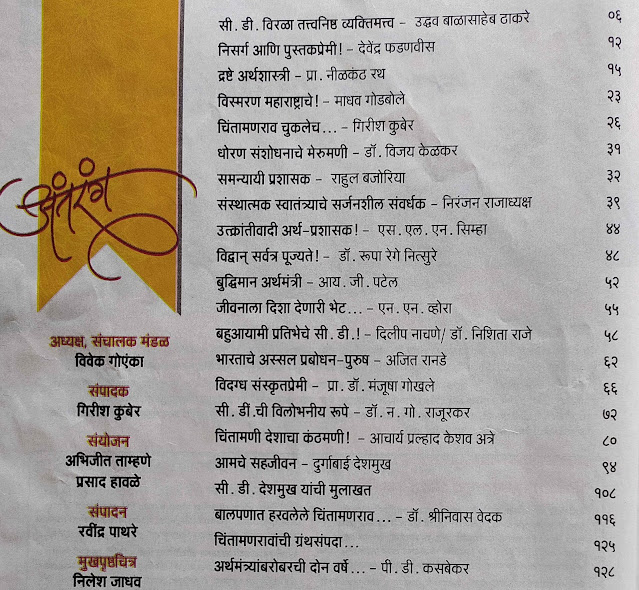 सी. डी. विरळा तत्त्वनिष्ठ व्यक्तिमत्त्व - उद्धव बाळासाहेब ठाकरे ०६
निसर्ग आणि पुस्तकप्रेमी! - देवेंद्र फडणवीस १२
द्रष्टे अर्थशास्त्री - प्रा. नीळकंठ रथ १५
विस्मरण महाराष्ट्राचे! - माधव गोडबोले २३
चिंतामणराव चुकलेच... - गिरीश कुबेर २६
धोरण संशोधनाचे मेरुमणी - डॉ. विजय केळकर ३१
समन्यायी प्रशासक - राहुल बजोरिया ३२
संस्थात्मक स्वातंत्र्याचे सर्जनशील संवर्धक - निरंजन राजाध्यक्ष ३९
उत्क्रांतीवादी अर्थ-प्रशासक! - एस. एल. एन. सिम्हा ४४
विद्वान् सर्वत्र पूज्यते! - डॉ. रूपा रेगे नित्सुरे ४८
बुद्धिमान अर्थमंत्री - आय. जी. पटेल ५२
जीवनाला दिशा देणारी भेट... - एन. एन. व्होरा ५५
बहुआयामी प्रतिभेचे सी. डी.! - दिलीप नाचणे/ डॉ. निशिता राजे ५८
भारताचे अस्सल प्रबोधन-पुरुष - अजित रानडे ६२
विदग्ध संस्कृतप्रेमी - प्रा. डॉ. मंजूषा गोखले ६६
सी. डीं.ची विलोभनीय रूपे - डॉ. न. गो. राजूरकर ७२
चिंतामणी देशाचा कंठमणी! - आचार्य प्रल्हाद केशव अत्रे ८०
आमचे सहजीवन - दुर्गाबाई देशमुख ९४
सी. डी. देशमुख यांची मुलाखत १०८
बालपणात हरवलेले चिंतामणराव... - डॉ. श्रीनिवास वेदक ११६
चिंतामणरावांची ग्रंथसंपदा... १२५
अर्थमंत्र्यांबरोबरची दोन वर्षे... - पी. डी. कसबेकर १२८
अंतरंग
अध्यक्ष, संचालक मंडळ
विवेक गोएंका
संपादक
गिरीश कुबेर
संयोजन
अभिजीत ताम्हणे
प्रसाद हावळे
संपादन
रवींद्र पाथरे
मुखपृष्ठचित्र
निलेश जाधव